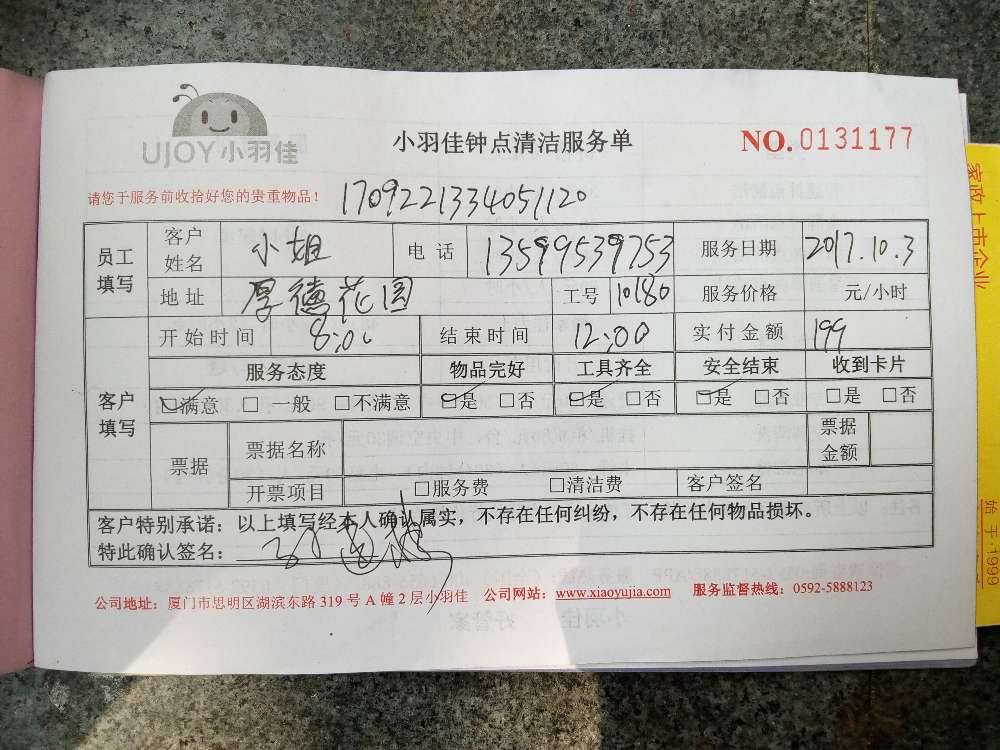 UJOY小羽佳
小羽佳钟点清洁服务单
NO.0131177
请您于服务前收拾好您的贵重物品！
1709221334051120
员工填写 客户姓名 小姐 电话 13599539753 服务日期 2017.10.3
地址 厚德花园 工号 10180 服务价格 元/小时
客户填写 开始时间 8:00 结束时间 12:00 实付金额 199
服务态度 物品完好 工具齐全 安全结束 收到卡片
☑满意 □一般 □不满意 ☑是 □否 ☑是 □否 ☑是 □否 □是 □否
票据 票据名称 票据金额
开票项目 □服务费 □清洁费 客户签名
客户特别承诺：以上填写经本人确认属实，不存在任何纠纷，不存在任何物品损坏。
特此确认签名：
公司地址：厦门市思明区湖滨东路319号A幢2层小羽佳 公司网站：www.xiaoyujia.com 服务监督热线：0592-5888123
家政上市企业
始于1999